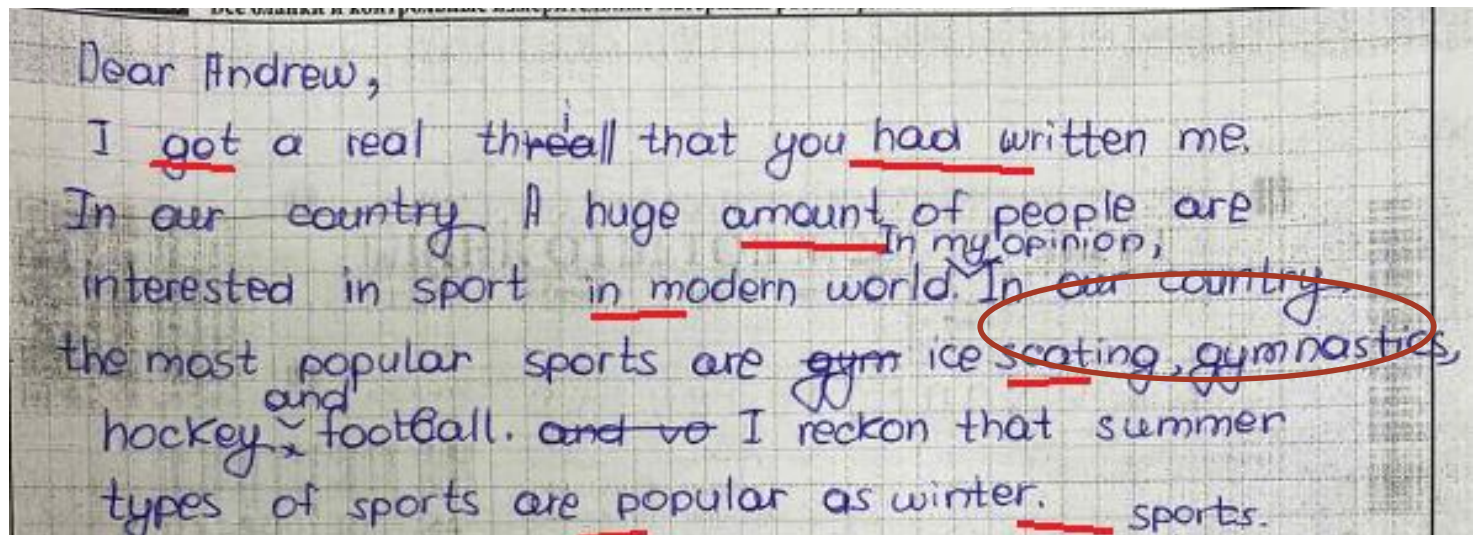 Все бланки и контрольные измерительные материалы
Dear Andrew,
I got a real thrill that you had written me.
In our country A huge amount of people are
In my opinion,
interested in sport in modern world. In our country
the most popular sports are gym ice scating, gymnastics,
and
hockey, football. and vo I reckon that summer
types of sports are popular as winter. sports.